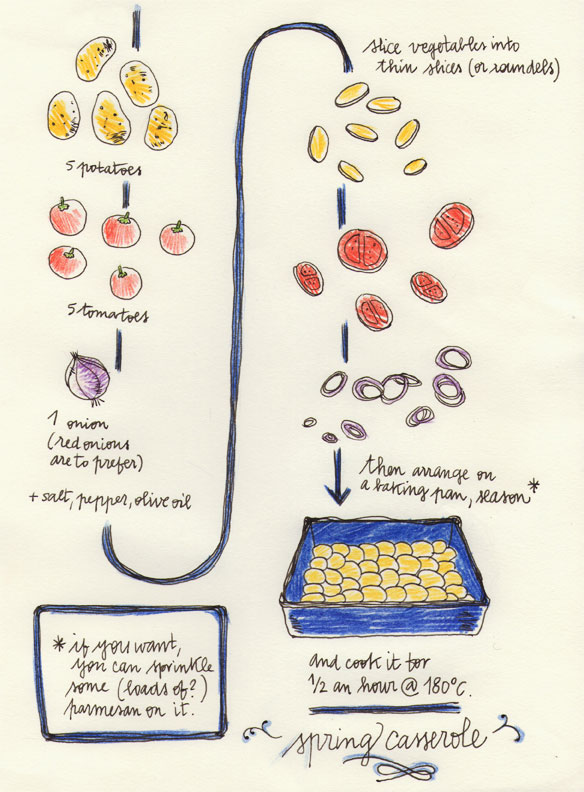 5 potatoes
5 tomatoes
1 onion
(red onions
are to prefer)
+ salt, pepper, olive oil
* if you want,
you can sprinkle
some (loads of?)
parmesan on it.
slice vegetables into
thin slices (or roundels)
then arrange on
a baking pan, season*
and cook it for
1/2 an hour @ 180°C.
spring casserole